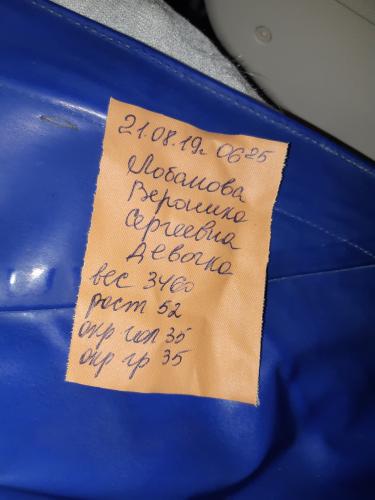 21.08.19г. 0625
Лобанова
Вероника
Сергеевна
Девочка
вес 3460
рост 52
окр гол 35
окр гр 35